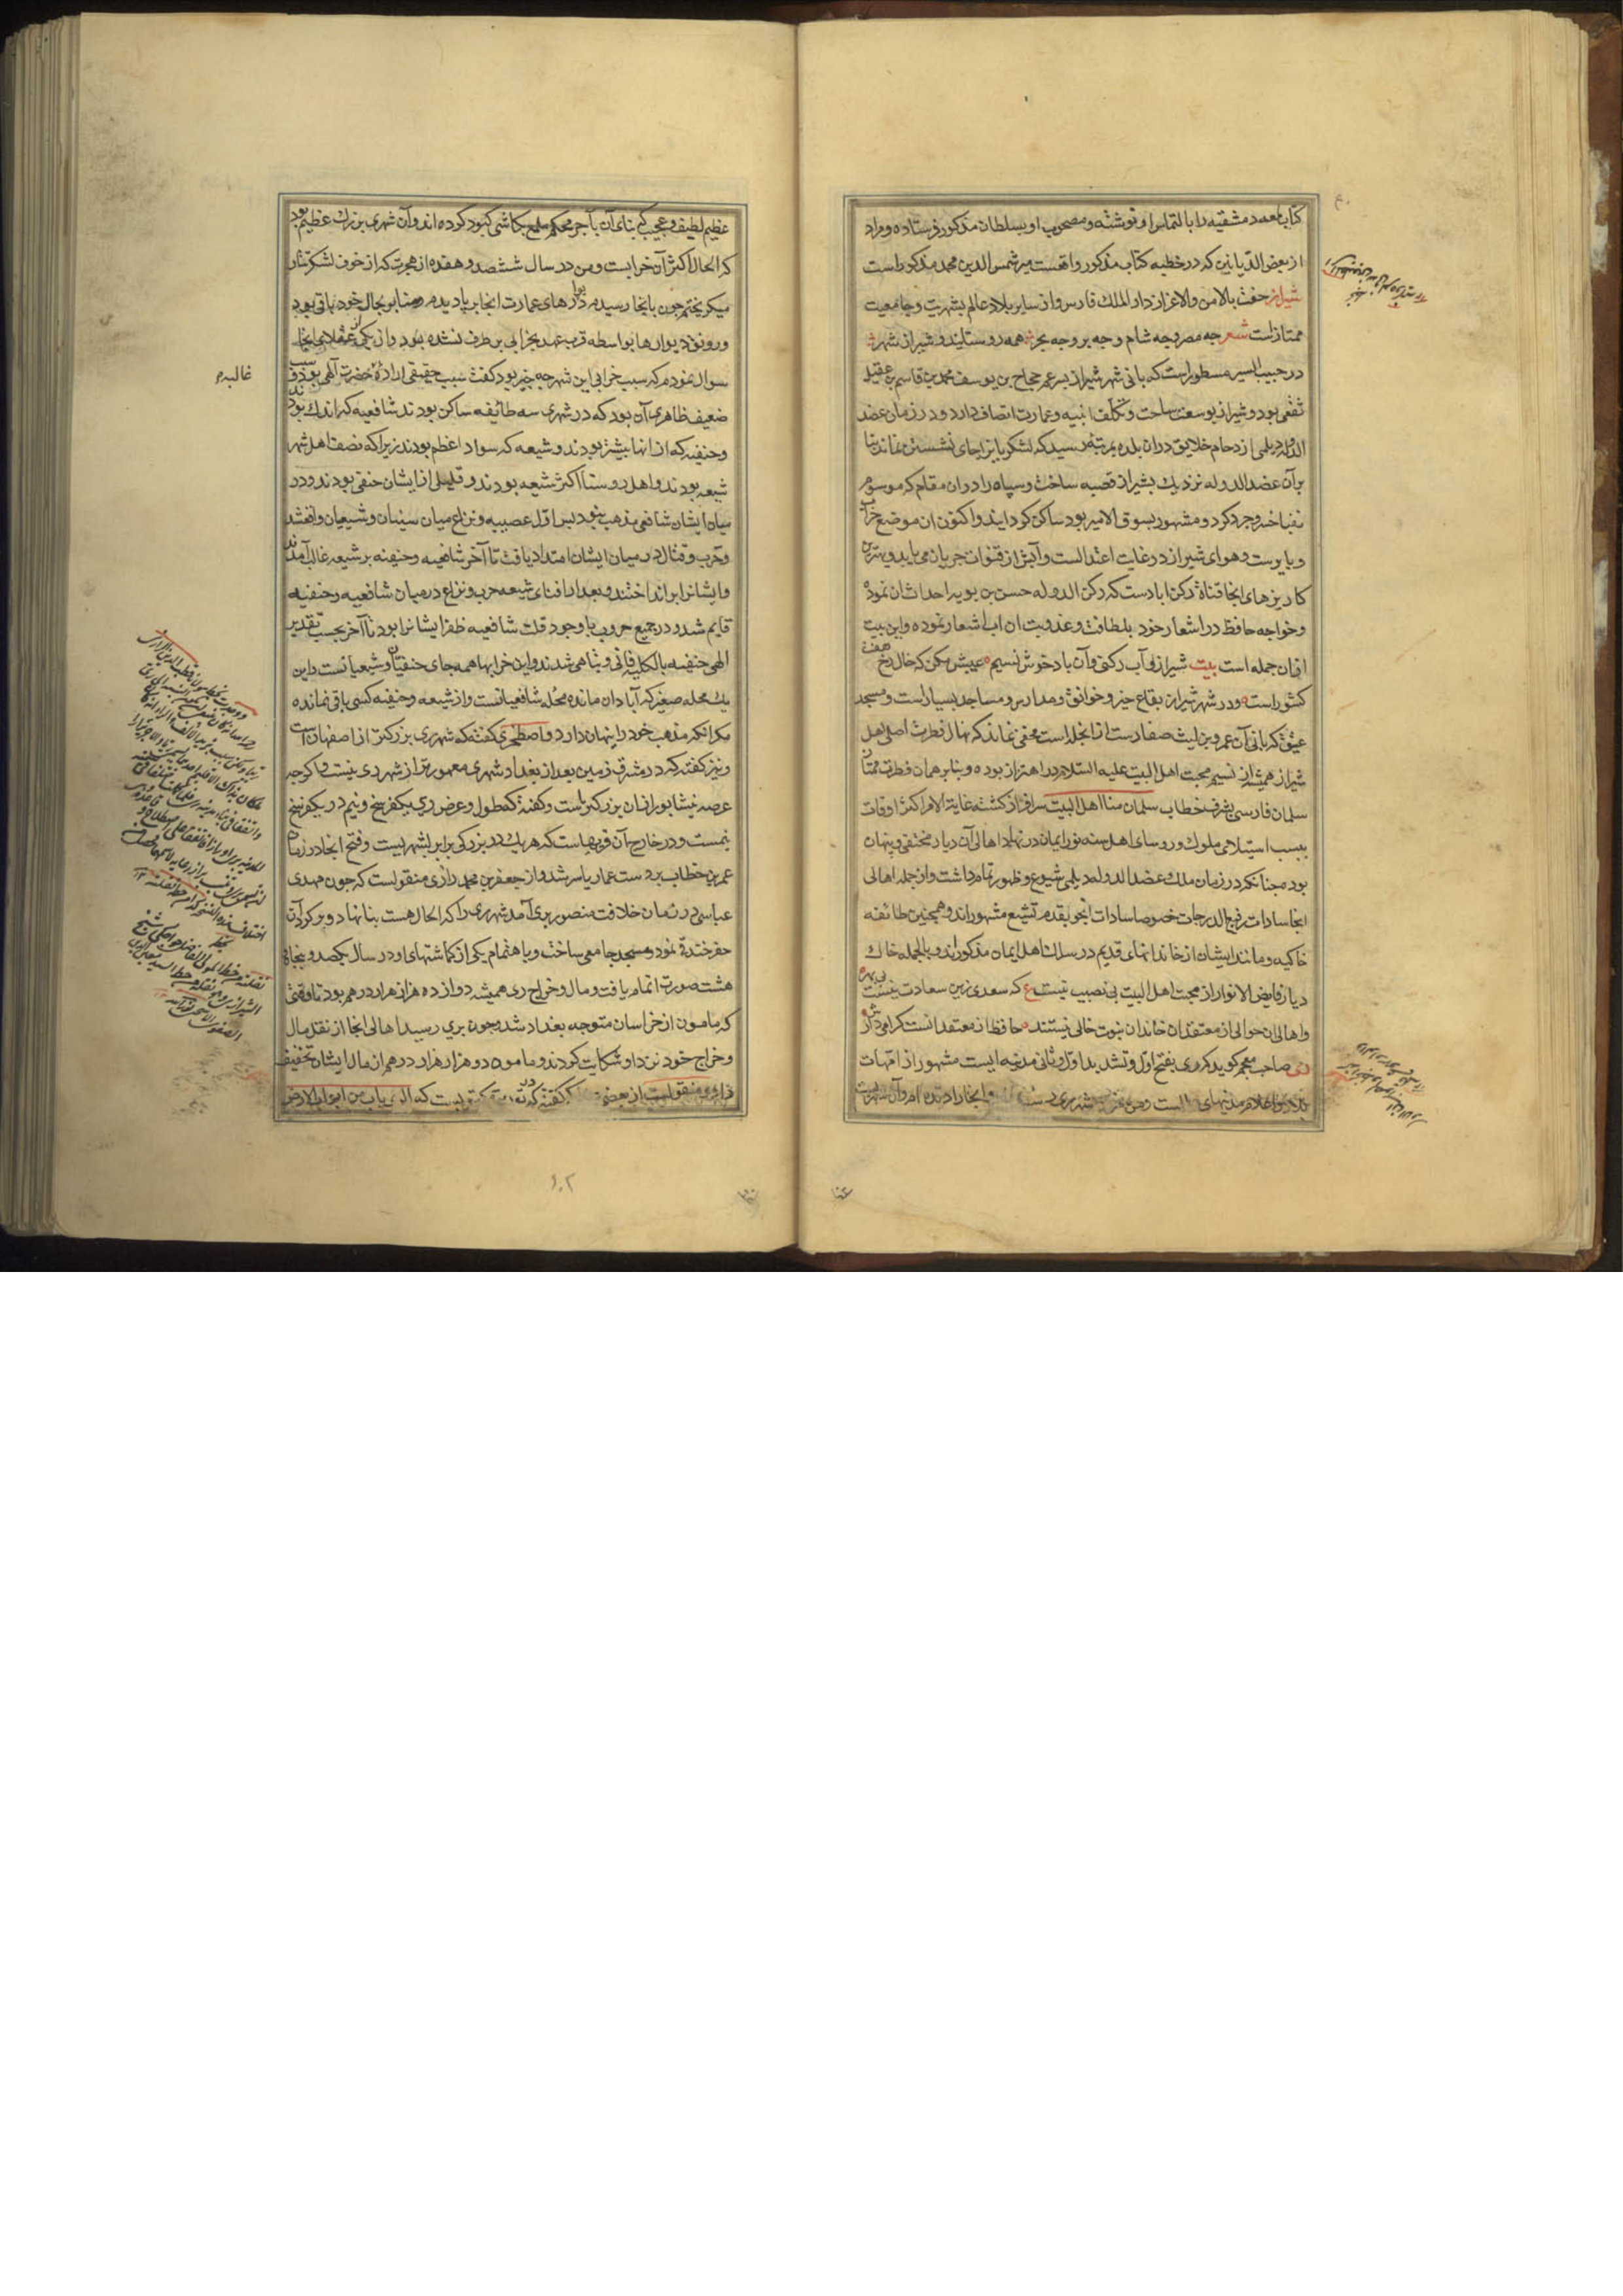 کتاب لمعه دمشقیه را بالتماس او نوشته و مصحوب او بسلطان مذکور فرستاده و مراد
از بعض الدیانین که در خطبه کتاب مذکور واقعست میر شمس الدین محمد مذکور است
شیراز حفت بالامن والاعزاز دار الملک فارس و از سایر بلاد عالم بشهریت و جامعیت
ممتاز است شعر چه مصر و چه شام و چه بر و چه بحر همه روستایند و شیراز شهر
در حبیب السیر مسطور است که بانی شهر شیراز پسر عم حجاج بن یوسف محمد بن قاسم بن عقیل
ثقفی بود و شیراز بوسعت ساحت و تکلف ابنیه و عمارت اتصاف دارد و در زمان عضد
الدوله دیلمی ازدحام خلایق در آن بلده بمرتبه رسید که لشکریانرا جای نشستن نماند بنا
بر آن عضد الدوله نزدیک بشیراز قصبه ساخت و سپاه را در آن مقام که موسوم
بفنا خسرو جرد کرد و مشهور بسوق الامیر بود ساکن گردانید و اکنون آن موضع خراب
و بایرست و هوای شیراز در غایت اعتدالست و آبش از قنوات جریان می یابد و بهترین
کاریزهای آنجا قناة رکن ابادست که رکن الدوله حسن بن بویه احداث آن نموده
و خواجه حافظ در اشعار خود بلطافت و عذوبت آن آب اشعار نموده و این بیت
از آن جمله است بیت شیراز و آب رکنی و آن باد خوش نسیم عیبش مکن که خال رخ هفت
کشور است و در شهر شیراز بقاع خیر و خوانق و مدارس و مساجد بسیار است و مسجد
عتیق که بانی آن عمرو بن لیث صفارست از آنجمله است مخفی نماند که نهال فطرت اصلی اهل
شیراز همیشه از نسیم محبت اهل البیت علیه السلام در اهتزاز بوده و بنابر همان فطرت ممتاز
سلمان فارسی بشرف خطاب سلمان منا اهل البیت سرافراز گشته غایة الامر اکثر اوقات
بسبب استیلای ملوک و روسای اهل سنه نور ایمان در نهاد اهالی آن دیار مختفی و پنهان
بوده چنانکه در زمان ملک عضد الدوله دیلمی شیوع و ظهور تمام داشت و از جمله اهالی
آنجا سادات رفیع الدرجات خصوصا سادات انجو بقدم تشیع مشهوراند و همچنین طائفه
خاکیه و مانند ایشان از خاندانهای قدیم در سلک اهل ایمان مذکوراند و بالجمله خاک
دیار فایض الانوار از محبت اهل البیت بی نصیب نیست ع که سعدی زین سعادت نیست بی بهره
و اهالی آن حوالی از معتقدان خاندان نبوت خالی نیستند حافظ از معتقدانست گرامی دارش
ری صاحب معجم گوید که ری بفتح اول و تشدید
عظیم لطیف و عجیب که بنای آن بآجر محکم ملمع بکاشی کبود کرده اند و آن شهری بزرگ عظیم بود
که الحال اکثر آن خرابست و من در سال ششصد و هفده از هجرت که از خوف لشکر تتار
میگریختم چون بآنجا رسیدم دیوارهای عمارت آنجا برپا دیدم و منابر بحال خود باقی بود
و رونق دیوارها بواسطه قرب عهد بخرابی بر طرف نشده بود و از یکی از عقلای آنجا
سوال نمودم که سبب خرابی این شهر چه چیز بود گفت سبب حقیقی اراده حضرت الهی بود و سبب
ضعیف ظاهری آن بود که در شهری سه طائفه ساکن بودند شافعیه که اندک بودند
و حنفیه که از آنها بیشتر بودند و شیعه که سواد اعظم بودند زیرا که نصف اهل شهر
شیعه بودند و اهل روستا اکثر شیعه بودند و قلیلی از ایشان حنفی بودند و در
میان ایشان شافعی مذهب نبود پس اول عصبیه و نزاع میان سنیان و شیعیان واقع شد
و حرب و قتال در میان ایشان امتداد یافت تا آخر شافعیه و حنفیه بر شیعه غالب آمدند
و ایشانرا برانداختند و بعد از افنای شیعه حرب و نزاع در میان شافعیه و حنفیه
قایم شد و در جمیع حروب با وجود قلت شافعیه ظفر ایشانرا بود تا آخر بحسب تقدیر
الهی حنفیه بالکلیه فانی و تباهی شدند و این خرابها همه جای حنفیان و شیعیانست و این
یک محله صغیر که آبادان مانده محله شافعیانست و از شیعه و حنفیه کسی باقی نمانده
مگر آنکه مذهب خود را پنهان دارد و اصطخری گفته که شهر ری بزرگتر از اصفهان است
و نیز گفته که در مشرق زمین بعد از بغداد شهری معمورتر از شهر ری نیست و اگرچه
عرصه نیشابور از آن بزرگتر است و گفته که طول و عرض ری یکفرسخ و نیم در یکفرسخ
و نیمست و در خارج آن قریهاست که هر یک در بزرگی برابر شهریست و فتح آنجا در زمان
عمر بن خطاب بر دست عمار یاسر شد و از جعفر بن محمد رازی منقولست که چون مهدی
عباسی در زمان خلافت منصور بری آمد شهر ری را که الحال هست بنا نهاد و بر گرد آن
حفر خندق نمود و مسجد جامعی ساخت و باهتمام یکی از گماشتهای او در سال یکصد و پنجاه
هشت صورت اتمام یافت و مال و خراج ری همیشه دوازده هزار هزار درهم بود تا وقتی
که مامون از خراسان متوجه بغداد شد و چون بری رسید اهالی آنجا از نقل مال
و خراج خود نزد او شکایت کردند و مامون دو هزار هزار درهم از مال ایشان تخفیف
۱۰۲